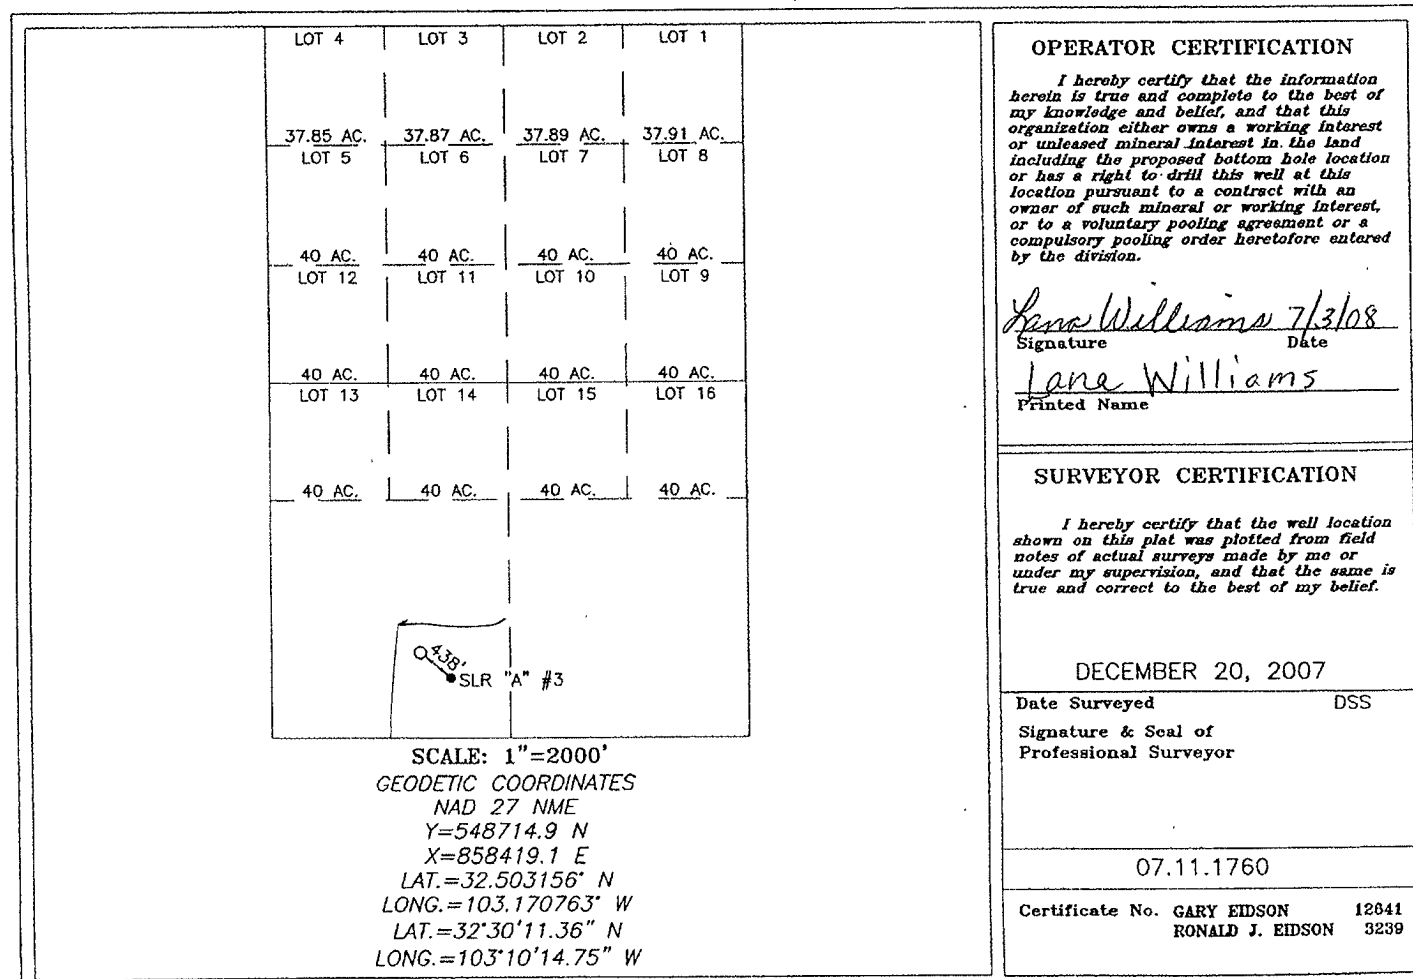 LOT 4 LOT 3 LOT 2 LOT 1
37.85 AC. 37.87 AC. 37.89 AC. 37.91 AC.
LOT 5 LOT 6 LOT 7 LOT 8
40 AC. 40 AC. 40 AC. 40 AC.
LOT 12 LOT 11 LOT 10 LOT 9
40 AC. 40 AC. 40 AC. 40 AC.
LOT 13 LOT 14 LOT 15 LOT 16
40 AC. 40 AC. 40 AC. 40 AC.
438'
SLR "A" #3
SCALE: 1"=2000'
GEODETIC COORDINATES
NAD 27 NME
Y=548714.9 N
X=858419.1 E
LAT.=32.503156° N
LONG.=103.170763° W
LAT.=32°30'11.36" N
LONG.=103°10'14.75" W
OPERATOR CERTIFICATION
I hereby certify that the information
herein is true and complete to the best of
my knowledge and belief, and that this
organization either owns a working interest
or unleased mineral interest in the land
including the proposed bottom hole location
or has a right to drill this well at this
location pursuant to a contract with an
owner of such mineral or working interest,
or to a voluntary pooling agreement or a
compulsory pooling order heretofore entered
by the division.
Lana Williams 7/3/08
Signature Date
Lana Williams
Printed Name
SURVEYOR CERTIFICATION
I hereby certify that the well location
shown on this plat was plotted from field
notes of actual surveys made by me or
under my supervision, and that the same is
true and correct to the best of my belief.
DECEMBER 20, 2007
Date Surveyed DSS
Signature & Seal of
Professional Surveyor
07.11.1760
Certificate No. GARY EIDSON 12641
RONALD J. EIDSON 3239